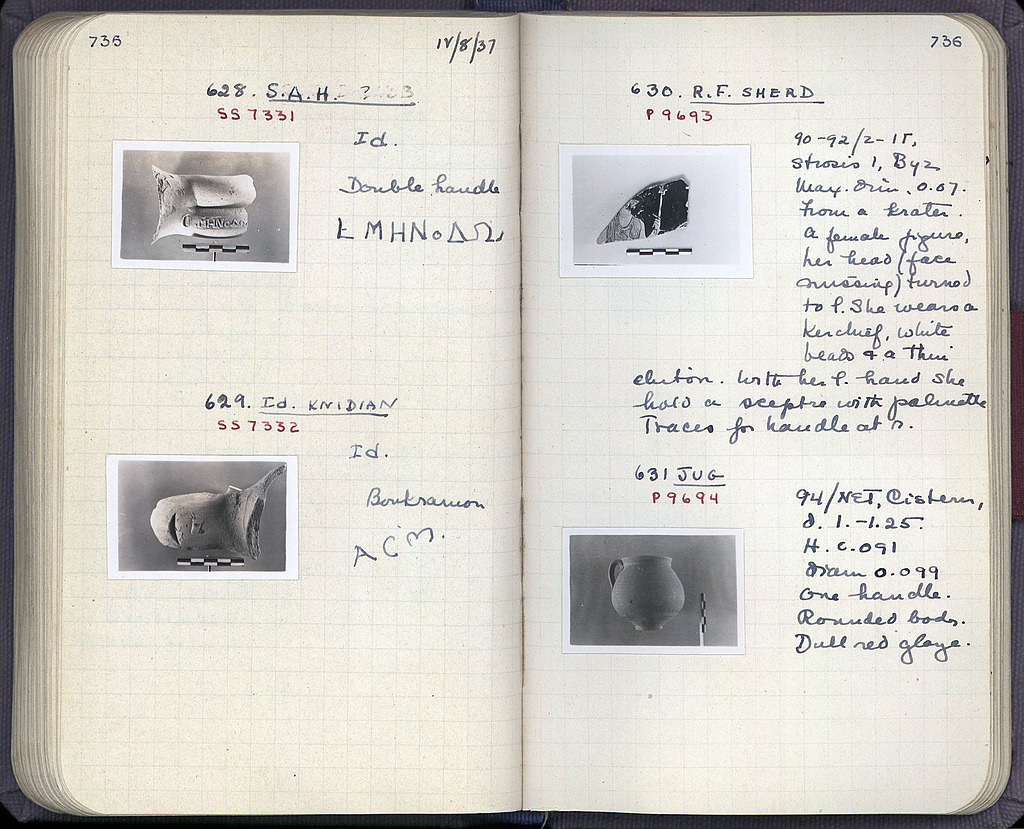 735
12/8/37
628. S.A.H. ?
SS 7331
Id.
Double handle
ΜΗΝοΔΩ
629. Id. KNIDIAN
SS 7332
Id.
Boukranion
736
630. R.F. SHERD
P 9693
90-92/2-ΙΓ,
strosis 1, Byz
Max. dim. 0.07.
from a krater.
A female figure,
her head (face
missing) turned
to l. She wears a
kerchief, white
beads & a thin
chiton. With her l. hand she
hold a sceptre with palmette
Traces for handle at r.
631 JUG
P 9694
94/ΝΣΤ, Cistern,
d. 1.-1.25.
H. 0.091
Diam 0.099
One handle.
Rounded body.
Dull red glaze.